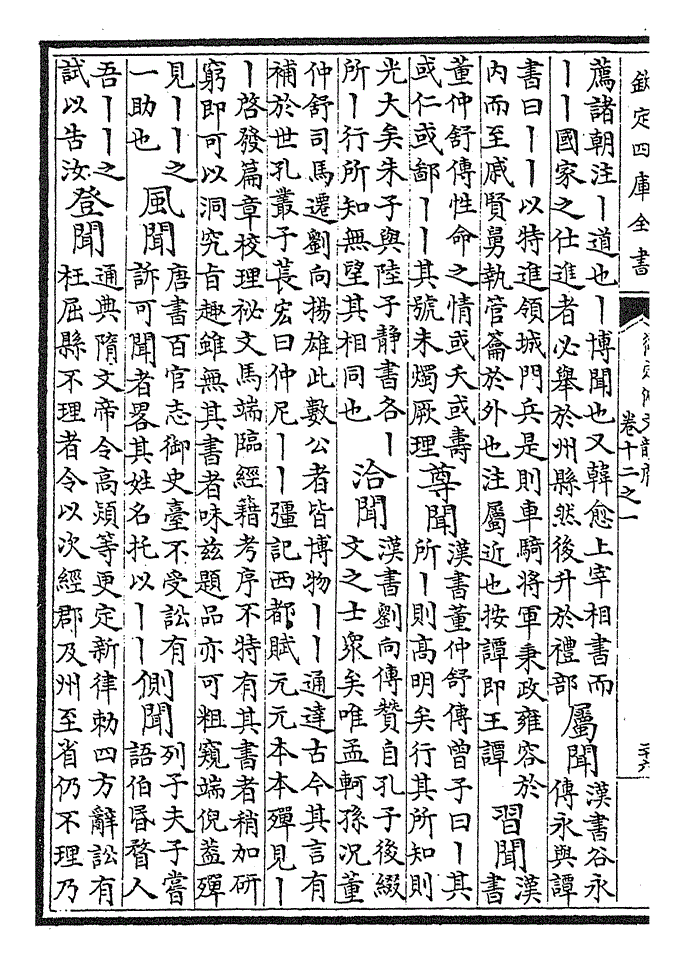 欽定四庫全書
卷十二之一
薦諸朝注丨道也丨博聞也又韓愈上宰相書而
丨丨國家之仕進者必舉於州縣然後升於禮部
屬聞
漢書谷永
傳永與譚
書曰丨丨以特進領城門兵是則車騎將軍秉政雍容於
內而至戚賢舅執管籥於外也注屬近也按譚即王譚
習聞
漢
書
董仲舒傳性命之情或夭或壽
或仁或鄙丨丨其號未燭厥理
尊聞
漢書董仲舒傳曾子曰丨其
所丨則高明矣行其所知則
光大矣朱子與陸子靜書各丨
所丨行所知無望其相同也
洽聞
漢書劉向傳贊自孔子後綴
文之士衆矣唯孟軻孫況董
仲舒司馬遷劉向揚雄此數公者皆博物丨丨通達古今其言有
補於世孔叢子萇宏曰仲尼丨丨彊記西都賦元元本本殫見丨
丨啓發篇章校理祕文馬端臨經籍考序不特有其書者稍加研
窮即可以洞究旨趣雖無其書者味兹題品亦可粗窺端倪葢殫
見丨丨之
一助也
風聞
唐書百官志御史臺不受訟有
訴可聞者畧其姓名托以丨丨
側聞
列子夫子嘗
語伯昬瞀人
吾丨丨之
試以告汝
登聞
通典隋文帝令高熲等更定新律勅四方辭訟有
枉屈縣不理者令以次經郡及州至省仍不理乃